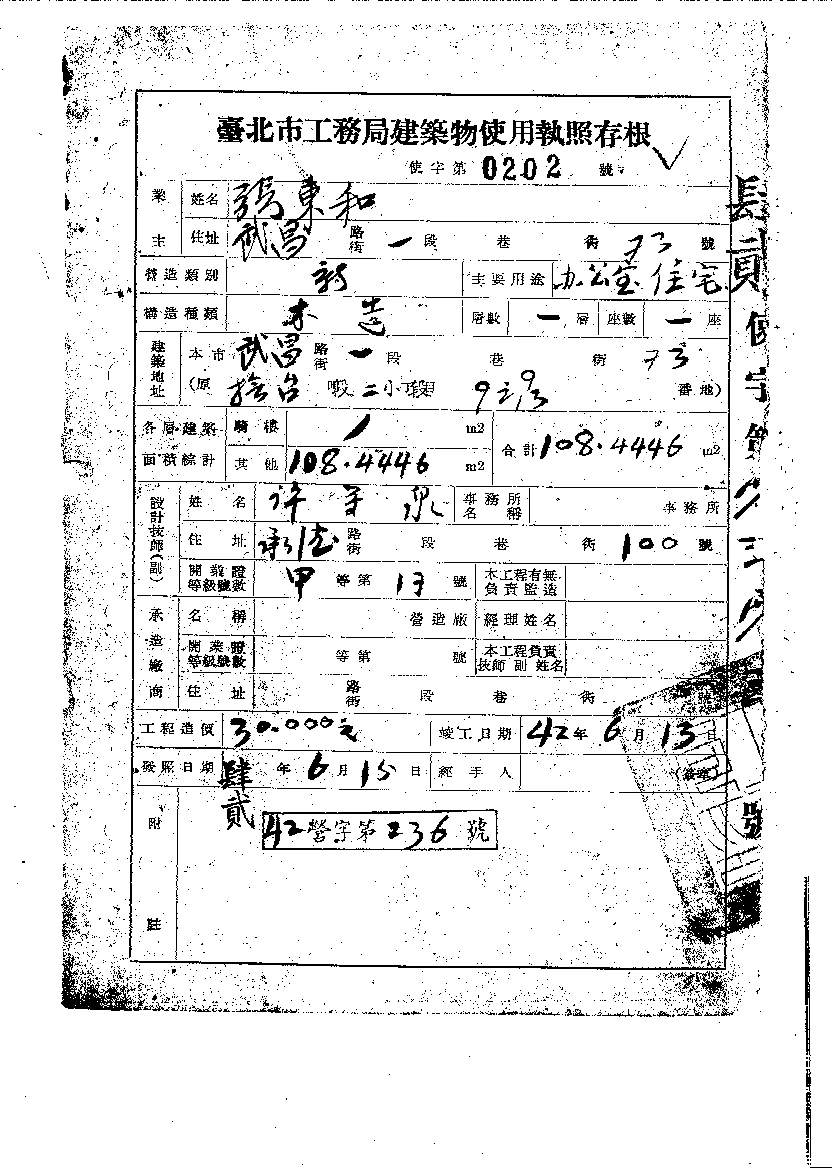 臺北市工務局建築物使用執照存根
使字第 0202 號
業主 姓名 張東和
住址 武昌 路街 一 段 巷 衖 73 號
營造類別 新 主要用途 办公室 住宅
構造種類 木造 層數 一 層 座數 一 座
建築地址 本市 武昌 路街 一 段 巷 衖 73
(原 段 二 小段 番地)
各層建築面積綜計 騎樓 / m2 合計 108.4446 m2
其他 108.4446 m2
設計技師(副) 姓名 許 泉 事務所名稱 事務所
住址 承德 路街 段 巷 衖 100 號
開業證等級號數 甲 等第 13 號 本工程有無負責監造
承造廠商 名稱 營造廠 經理姓名
開業證等級號數 等第 號 本工程負責技師副姓名
住址 路街 段 巷 衖 號
工程造價 30.000元 竣工日期 42年 6月 13日
發照日期 肆貳 年 6月 15日 經手人
附註
42營字第236號
貳使字第 號